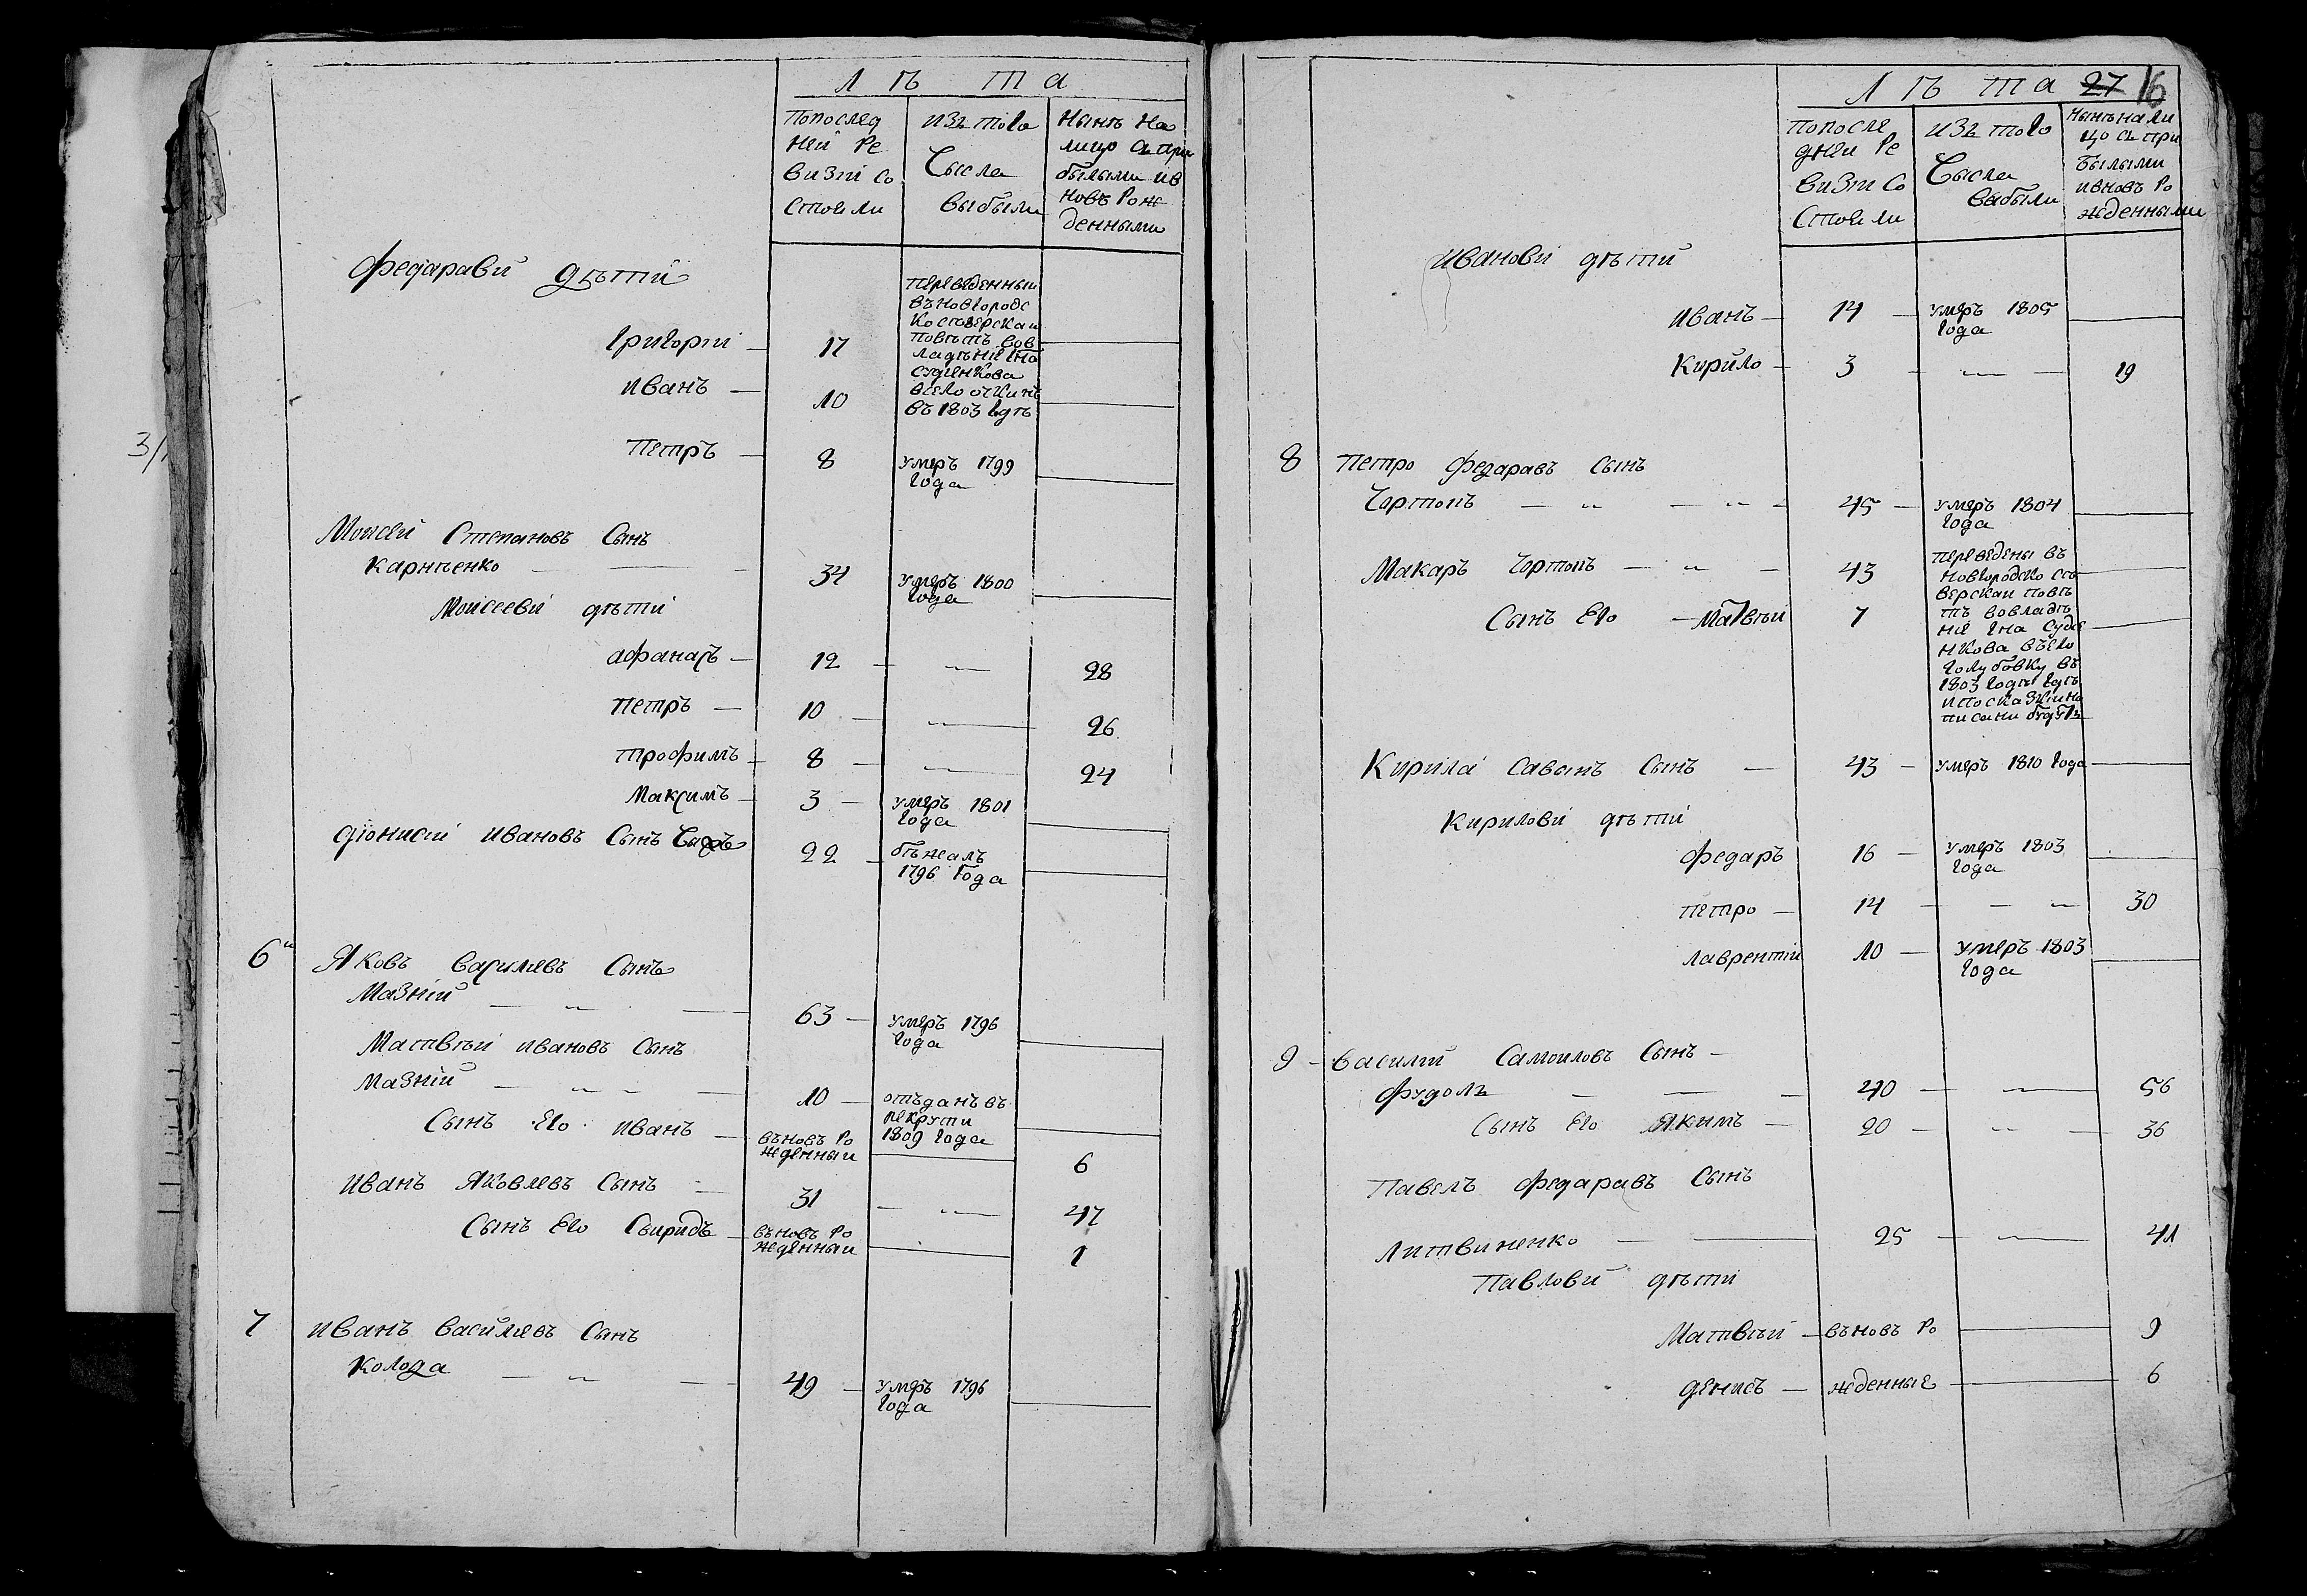 Лѣта
Попослед
ней Ре
визіи со
стояли
изъ того
Числа
выбыли
Нынѣ на
лицо съ при
былыми ив
новь рож
денными
Федарави дѣти
Григорій — 17
переведенныи
въ новгородс
косѣверскаи
повѣтъ вов
ладѣніе гна
судіенкова
Иванъ — 10
въ 1803 годѣ
Петръ — 8 умеръ 1799
года
Моисей Степановъ Сынъ
Карпенко — 34 умеръ 1800
года
Моисееви дѣти
Афанасъ — 12 — 28
Петръ — 10 — 26
Трофимъ — 8 — 24
Максимъ — 3 — умеръ 1801
года
Діонисій Ивановъ Сынъ
22 — бѣжалъ
1796 Года
6 Яковъ Василевъ Сынъ
Мазній — 63 — умеръ 1796
года
Матвѣй Ивановъ Сынъ
Мазній — 10 — отъданъ въ
рекрути
1809 года
Сынъ Его Иванъ — въновь Ро
жденныи — 6
Иванъ Яковлевъ Сынъ — 31 — 47
Сынъ Его Свиридъ — въновь Ро
жденныи — 1
7 Иванъ Василіевъ Сынъ
Колода — 49 — умеръ 1796
года
Лѣта 27 16
попосле
дней Ре
визіи Со
стояли
изъ того
Числа
выбыли
Нынѣ нали
цо съ при
былыми
ивновь Ро
жденными
Иванови дѣти
Иванъ — 14 — умеръ 1805
года
Кирило — 3 — 19
8 Петро Федаравъ Сынъ
Чортопъ — 45 — умеръ 1804
года
Макаръ Чортопъ — 43
переведены въ
новгородско сѣ
верскаи повѣ
тъ вовладѣ
ніе гна Судіе
нкова въ село
голубовку въ
1803 годѣ
Сынъ Его — Матвѣй 7
Кирила Савинъ Сынъ — 43 — умеръ 1810 года
Кирилови дѣти
Федаръ 16 — умеръ 1803
года
Петро — 14 — 30
Лаврентій 10 — умеръ 1803
года
9 — Василій Самоиловъ Сынъ —
Фудолъ — 40 — 56
Сынъ Его Якимъ — 20 — 36
Павелъ Федаравъ Сынъ
Литвиненко — 25 — 41
Павлови дѣти
Матвѣй — въновь Ро — 9
Денисъ — жденные — 6